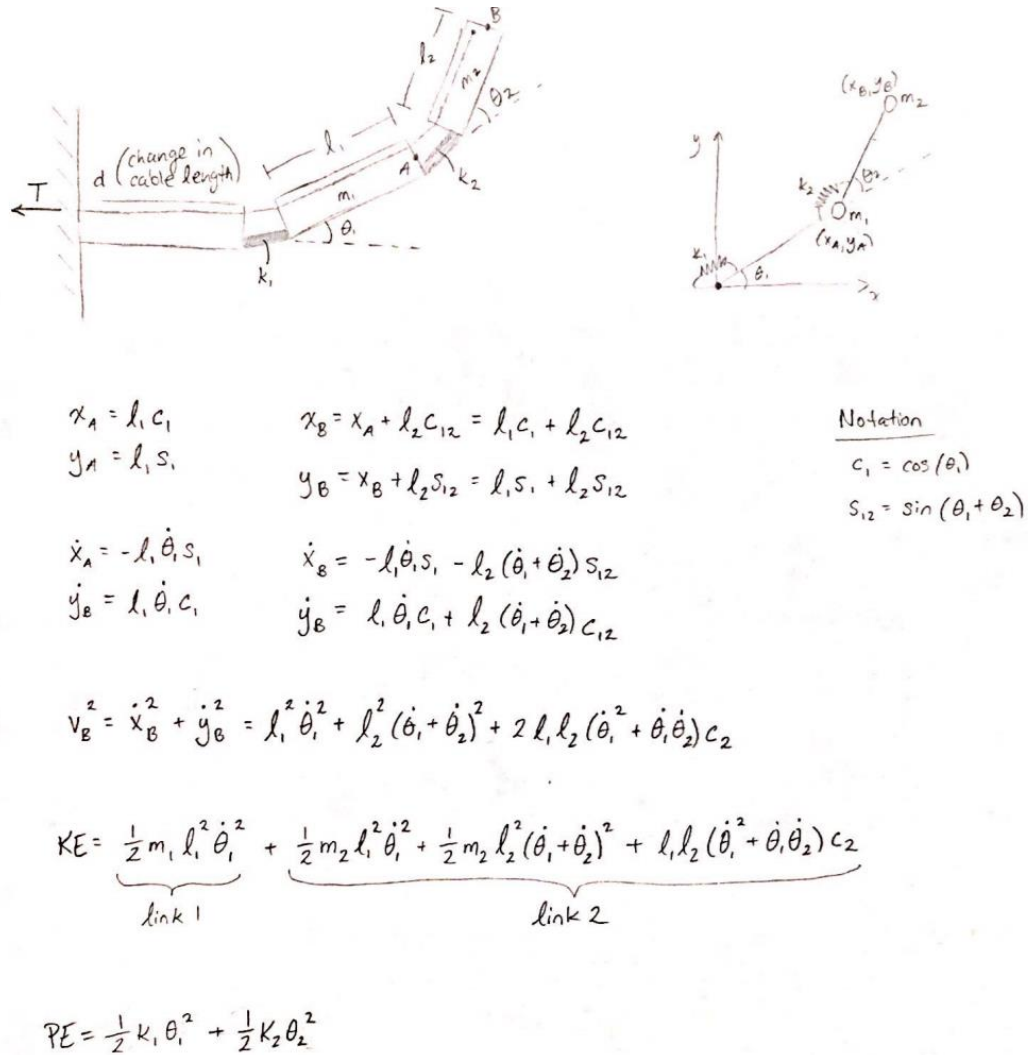 B
l₂
m₂
θ₂
l₁
d (change in cable length)
A
k₂
T
m₁
θ₁
k₁
y
(x_B, y_B)
m₂
k₂
θ₂
m₁
(x_A, y_A)
k₁
θ₁
x
x_A = l₁ c₁
x_B = x_A + l₂ c₁₂ = l₁ c₁ + l₂ c₁₂
Notation
y_A = l₁ s₁
y_B = x_B + l₂ s₁₂ = l₁ s₁ + l₂ s₁₂
c₁ = cos(θ₁)
s₁₂ = sin(θ₁ + θ₂)
ẋ_A = -l₁ θ̇₁ s₁
ẋ_B = -l₁ θ̇₁ s₁ - l₂ (θ̇₁ + θ̇₂) s₁₂
ẏ_B = l₁ θ̇₁ c₁
ẏ_B = l₁ θ̇₁ c₁ + l₂ (θ̇₁ + θ̇₂) c₁₂
v_B² = ẋ_B² + ẏ_B² = l₁² θ̇₁² + l₂² (θ̇₁ + θ̇₂)² + 2 l₁ l₂ (θ̇₁² + θ̇₁ θ̇₂) c₂
KE = ½ m₁ l₁² θ̇₁² + ½ m₂ l₁² θ̇₁² + ½ m₂ l₂² (θ̇₁ + θ̇₂)² + l₁ l₂ (θ̇₁² + θ̇₁ θ̇₂) c₂
link 1
link 2
PE = ½ k₁ θ₁² + ½ k₂ θ₂²